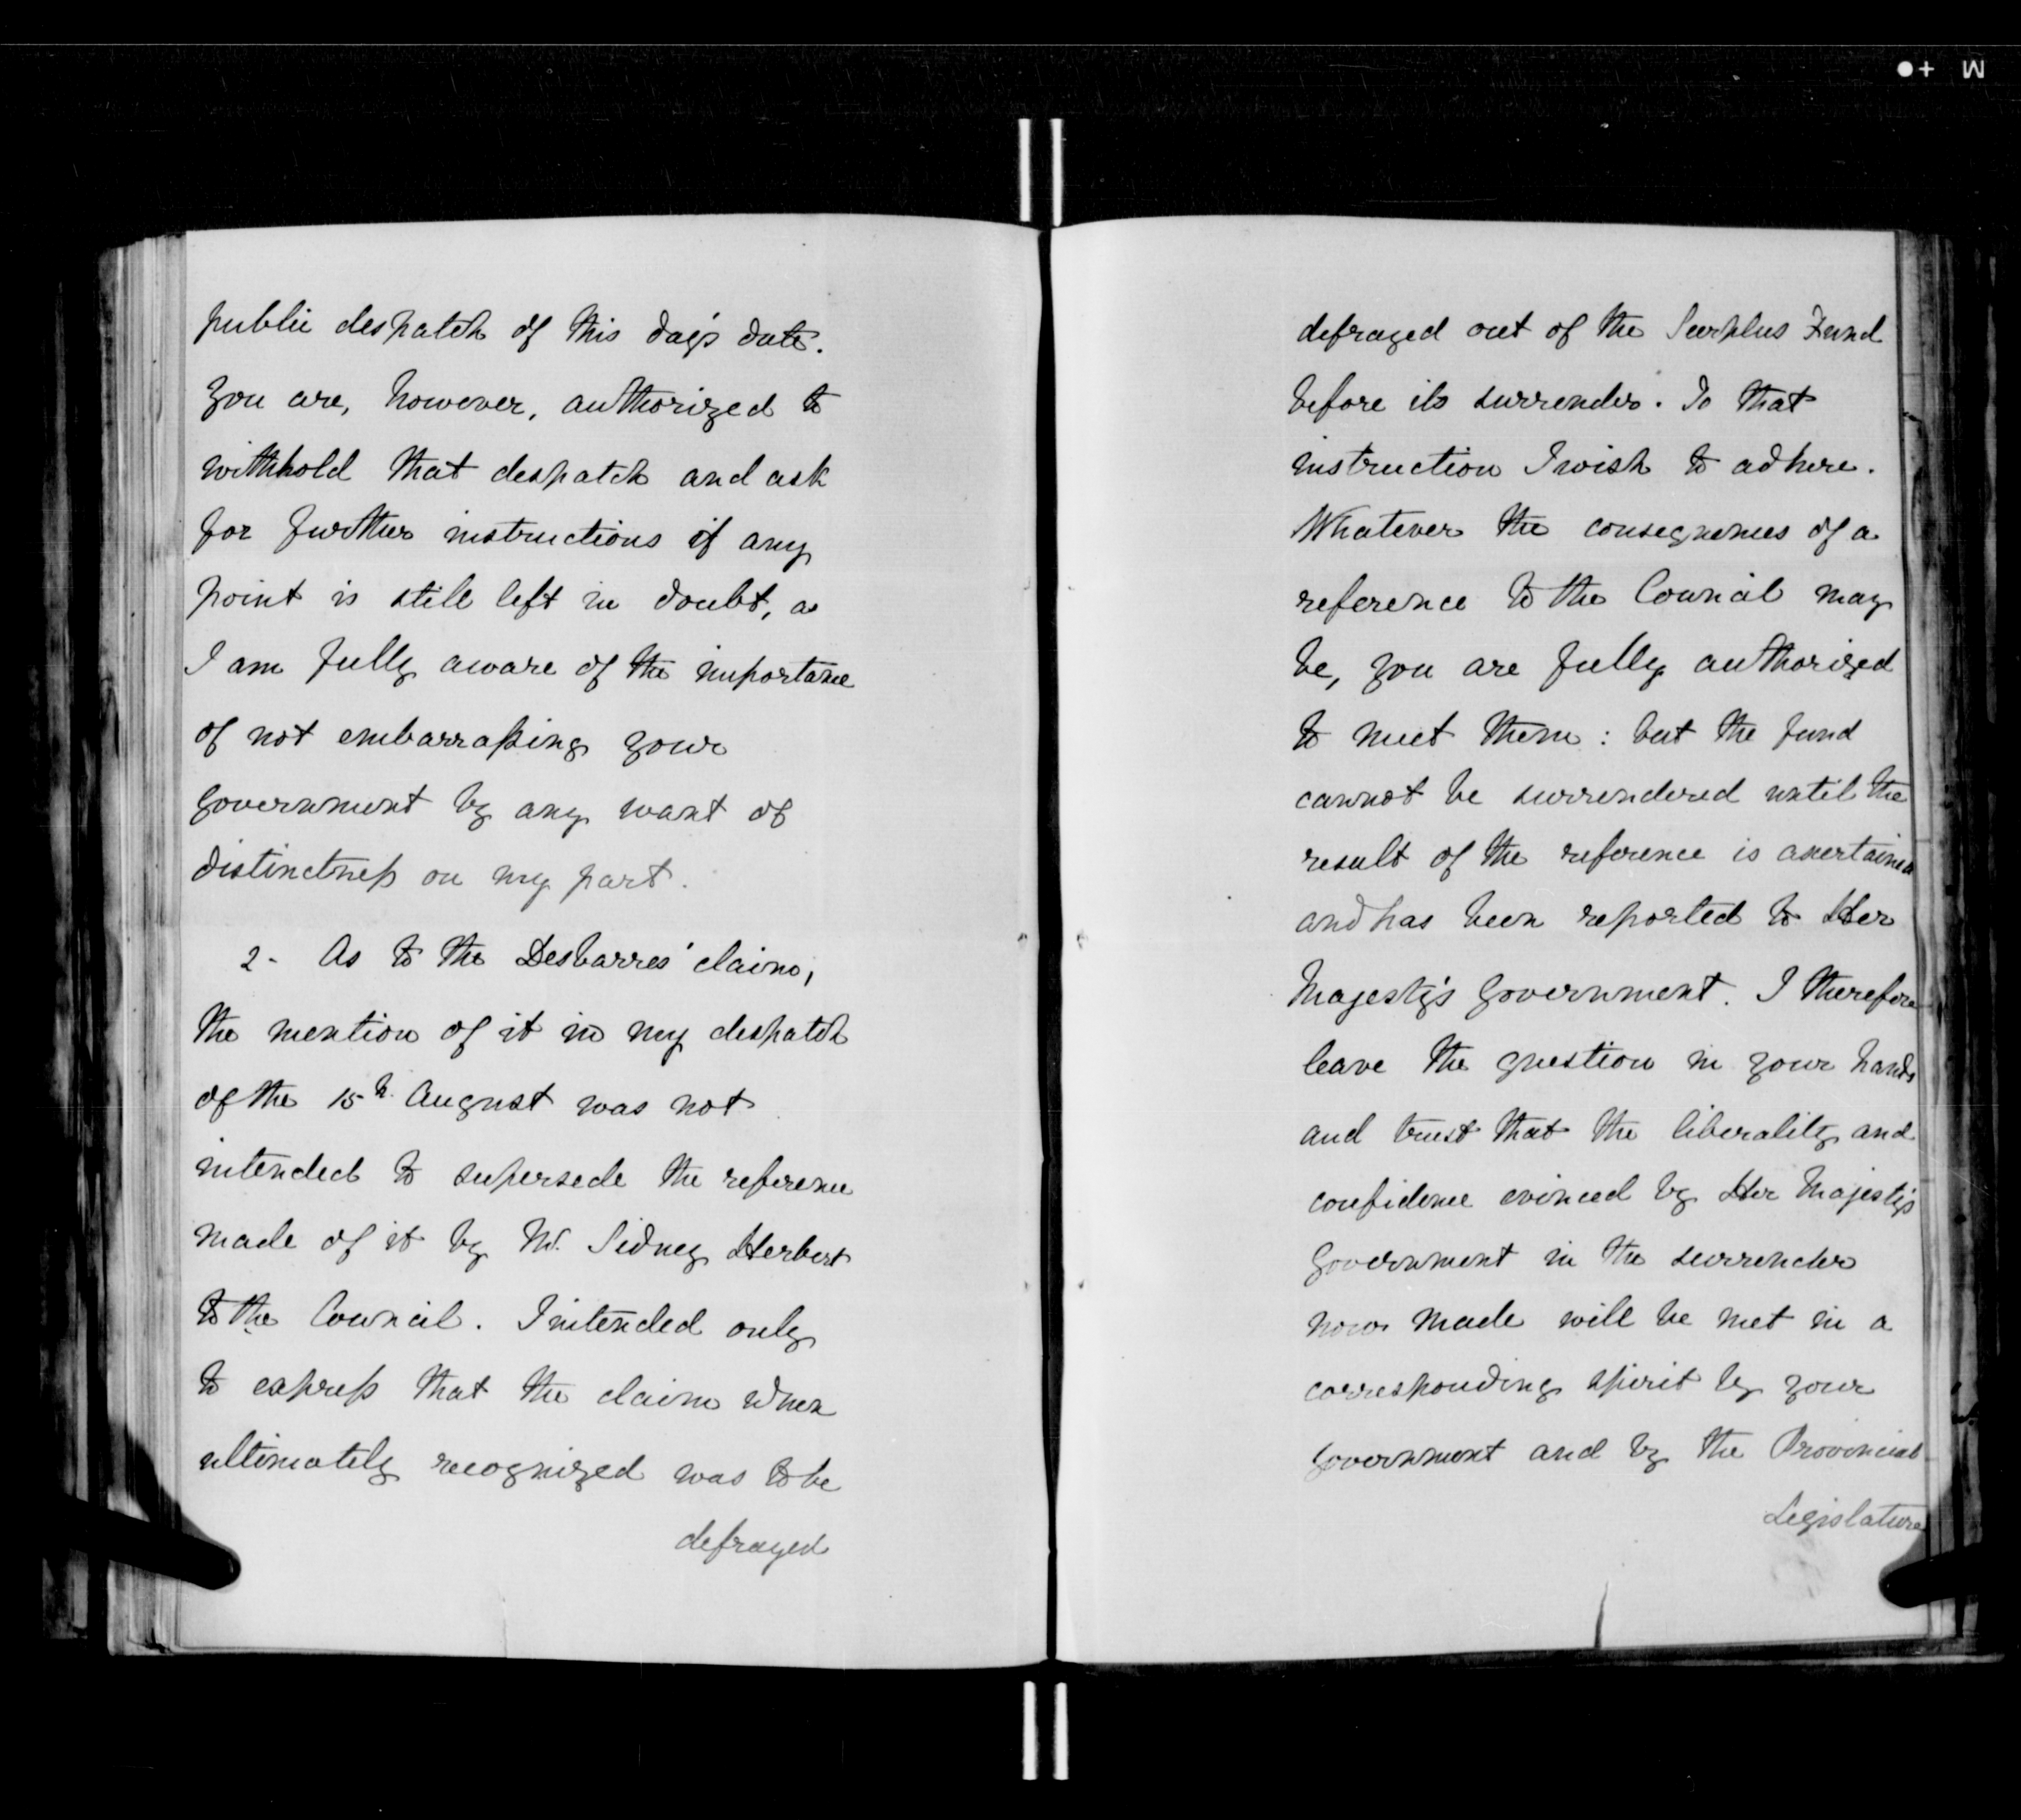 public despatch of this day's date.
You are, however, authorized to
withhold that despatch and ask
for further instructions if any
point is still left in doubt, as
I am fully aware of the importance
of not embarrassing your
Government by any want of
distinctness on my part.
2 - As to the Desbarres' claim,
the mention of it in my despatch
of the 15th August was not
intended to supersede the reference
made of it by Mr. Sidney Herbert
to the Council. I intended only
to express that the claim when
ultimately recognized was to be
defrayed
defrayed out of the Surplus Fund
before its surrender. To that
instruction I wish to adhere.
Whatever the consequences of a
reference to the Council may
be, you are fully authorized
to meet them: but the fund
cannot be surrendered until the
result of the reference is ascertained
and has been reported to Her
Majesty's Government. I therefore
leave the question in your hands
and trust that the liberality and
confidence evinced by Her Majesty's
Government in the surrender
now made will be met in a
corresponding spirit by your
Government and by the Provincial
Legislature
M